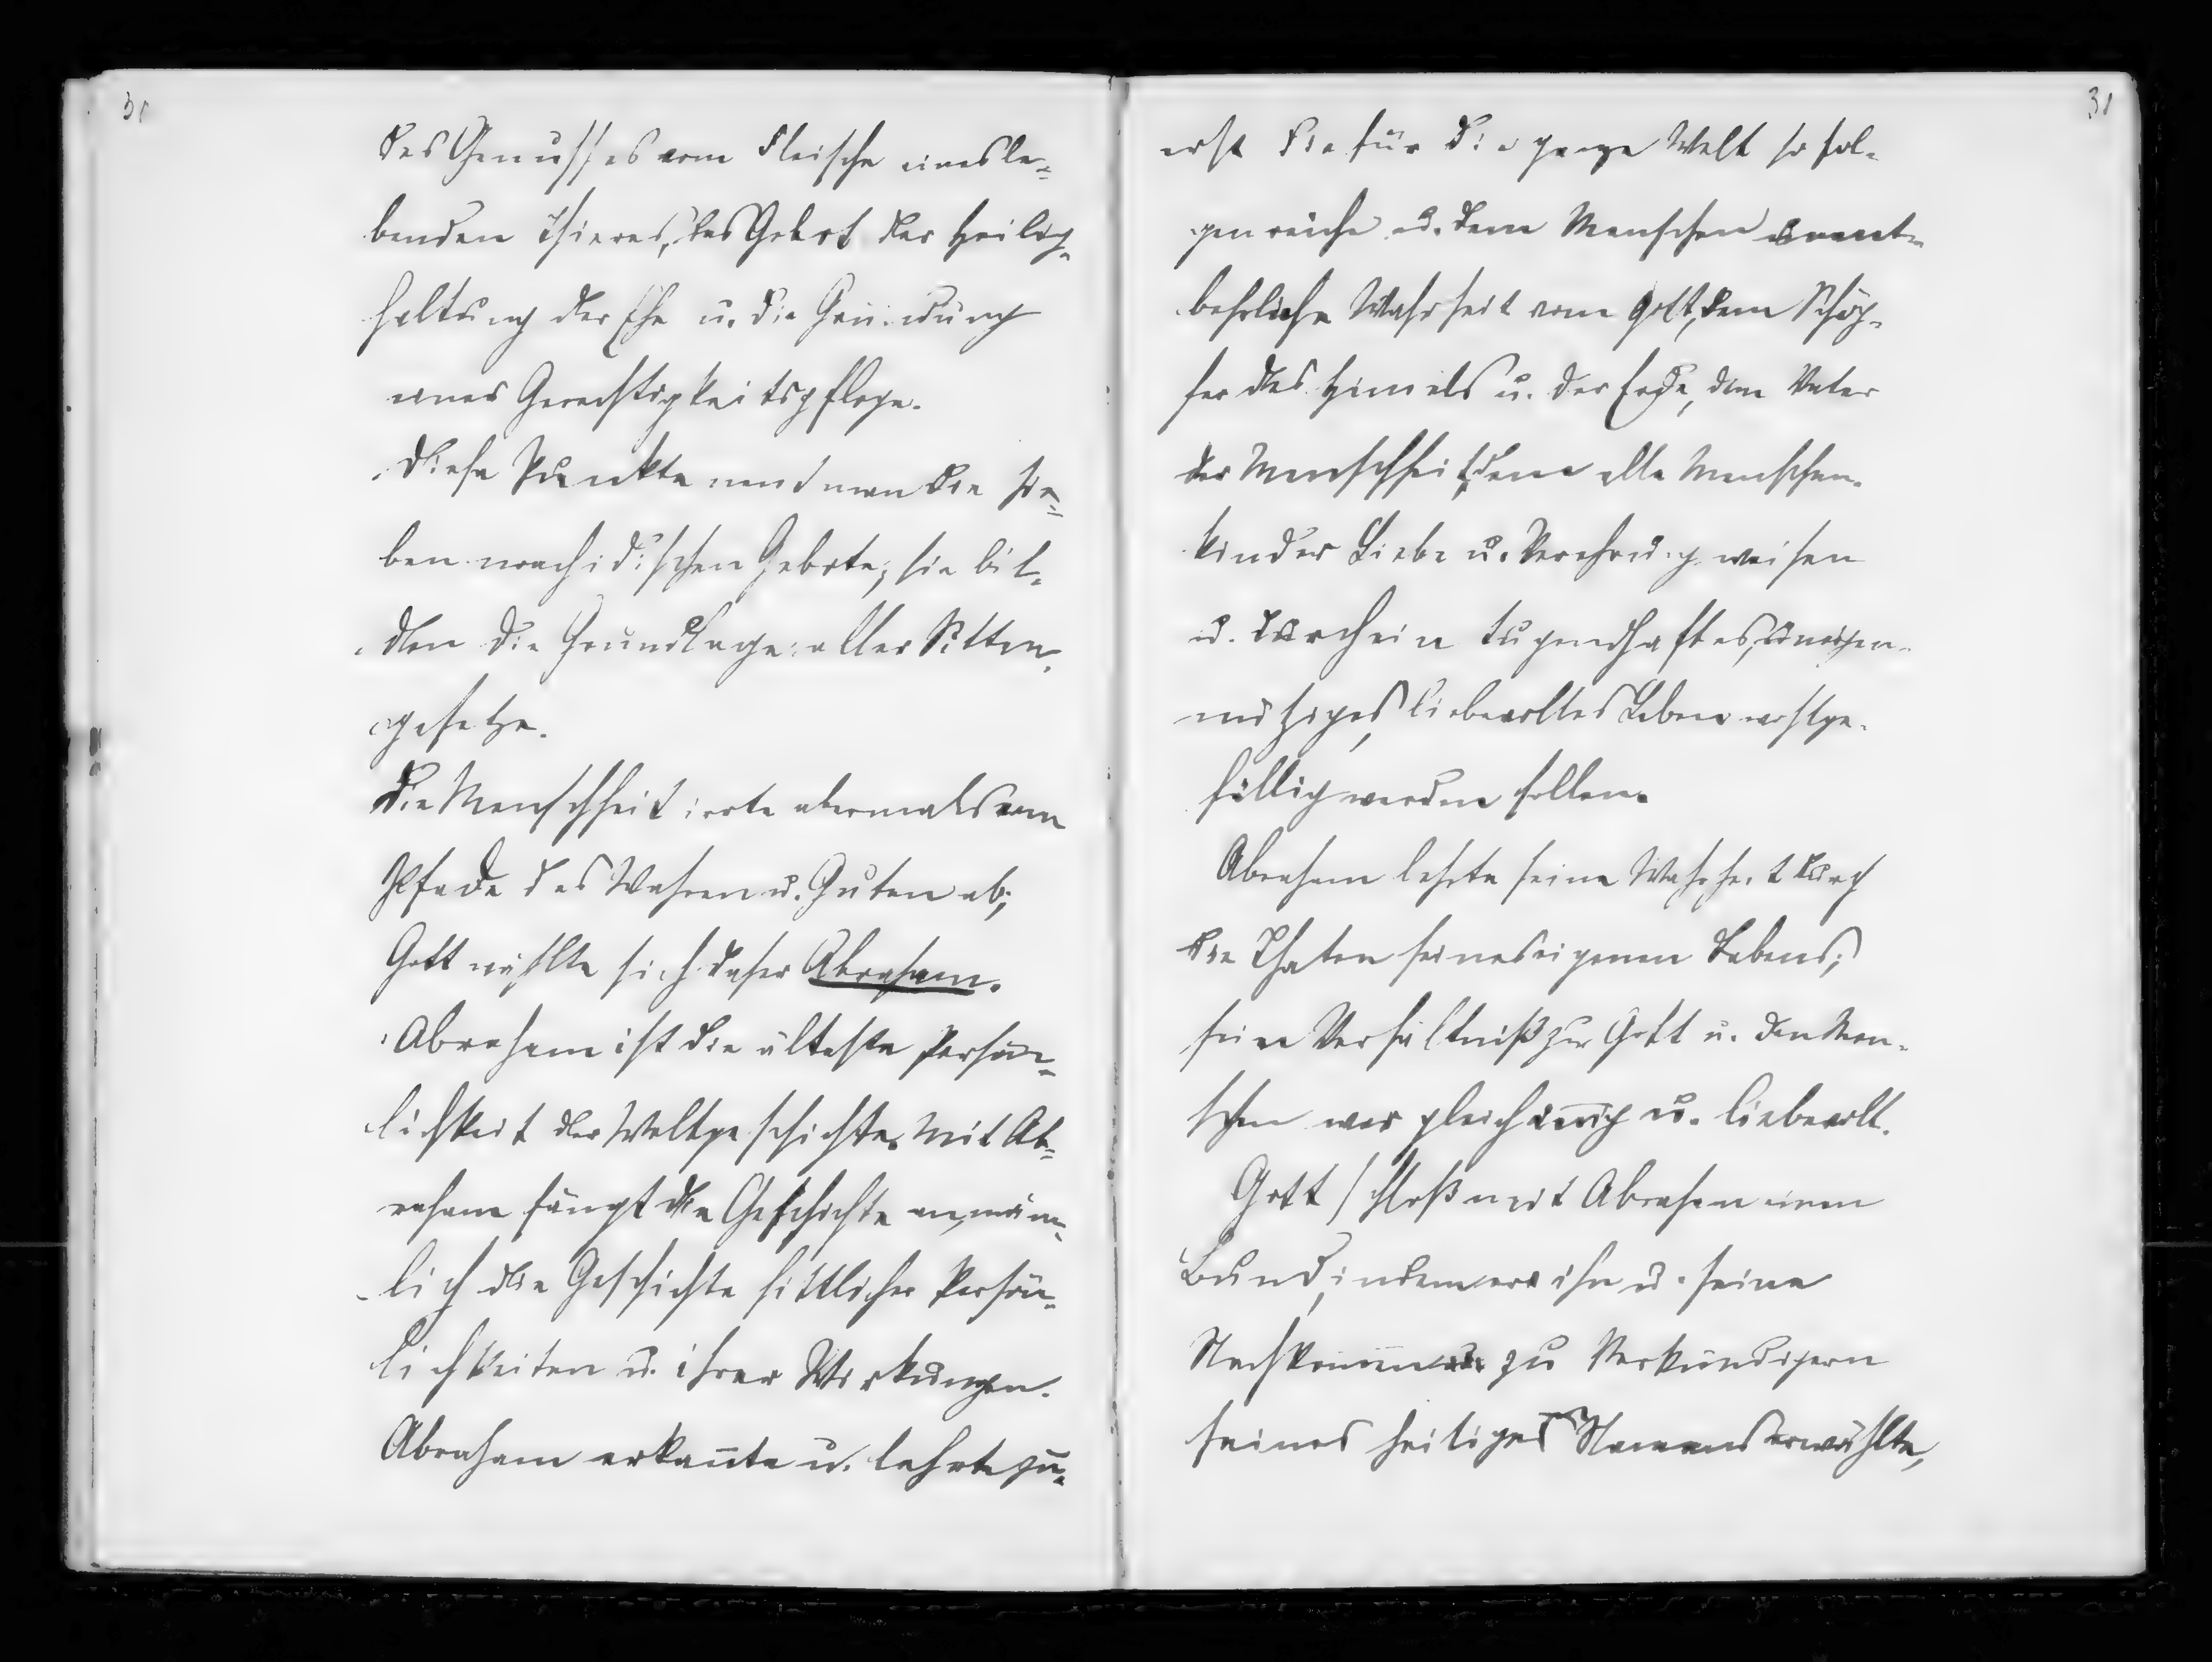 30
des Genusses vom Fleische eines le=
benden Thieres, das Gebot der Heilig=
haltung der Ehe u. die Gründung
einer Gerechtigkeitspflege.
Diese Punkte nent man die sie=
ben noachidischen Gebote; sie bil=
den die Grundlage aller Sitten=
gesetze.
Die Menschheit irrte abermals vom
Pfade des Wahren u. Guten ab;
Gott wählte sich daher Abraham.
Abraham ist die älteste Persön=
lichkeit der Weltgeschichte. Mit Ab=
raham fängt die Geschichte an, näm=
lich die Geschichte sittlicher Persön=
lichkeiten u. ihrer Wirkungen.
Abraham erkan̄te u. lehrte zu=
31
erst die für die ganze Welt so fol=
genreiche u. dem Menschen unent=
behrliche Wahrheit vom Gott, dem Schöp=
fer des Himels u. der Erde, dem Vater
der Menschheit, dem alle Menschen=
kinder Liebe u. Verehrung weisen
u. durch ein tugendhaftes, uneigen=
nütziges, liebevolles Leben wohlge=
fällig werden sollen.
Abraham lehrte seine Wahrheit durch
die Thaten seines eigenen Lebens;
sein Verhältniß zu Gott u. den Men=
schen war gleich in̄ig u. liebevoll.
Gott schloß mit Abraham einen
Bund, indem er ihn u. seine
Nachkom̄en zu Verkündigern
seines heiliges Namens erwählte,